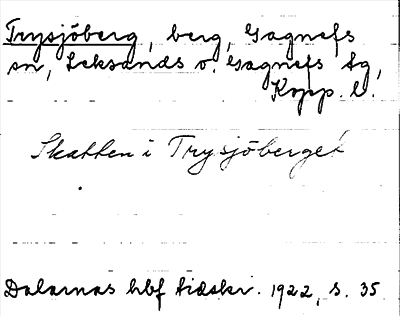 Trysjöberg, berg, Gagnefs
sn, Leksands o. Gagnefs tg,
Kopp. l.
Skatten i Trysjöberget
Dalarnas hbf tidskr. 1922, s. 35